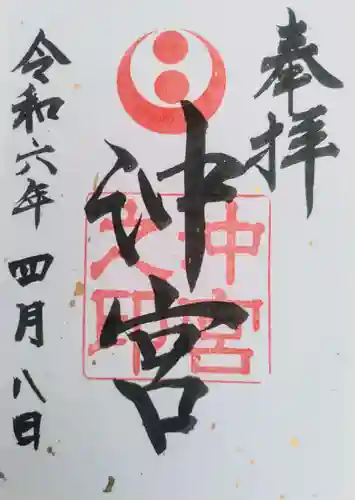 奉拝
沖宮
沖宮之印
令和六年四月八日